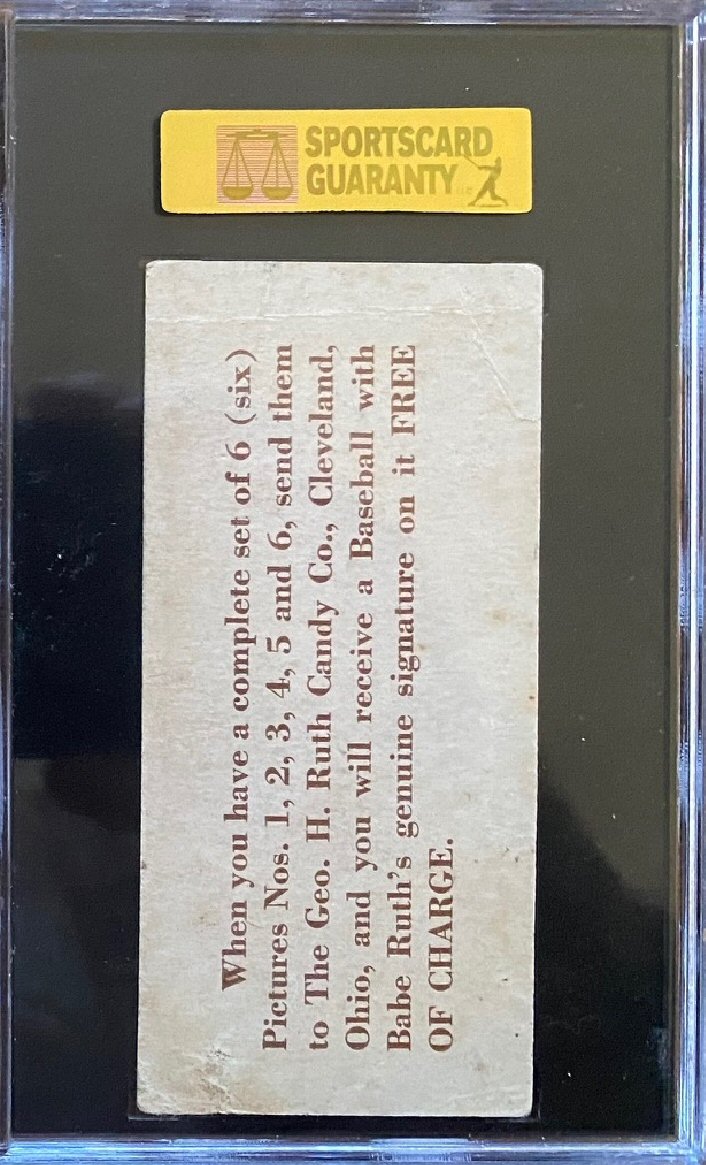 SPORTSCARD
GUARANTY
When you have a complete set of 6 (six)
Pictures Nos. 1, 2, 3, 4, 5 and 6, send them
to The Geo. H. Ruth Candy Co., Cleveland,
Ohio, and you will receive a Baseball with
Babe Ruth's genuine signature on it FREE
OF CHARGE.